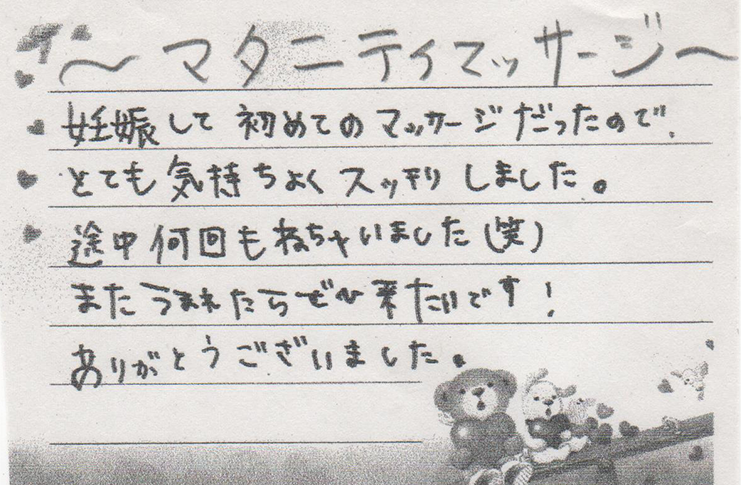 ～マタニティマッサージ～
妊娠して 初めてのマッサージだったので、
とても気持ちよくスッキリしました。
途中何回もねちゃいました(笑)
またうまれたらぜひ来たいです!
ありがとうございました。